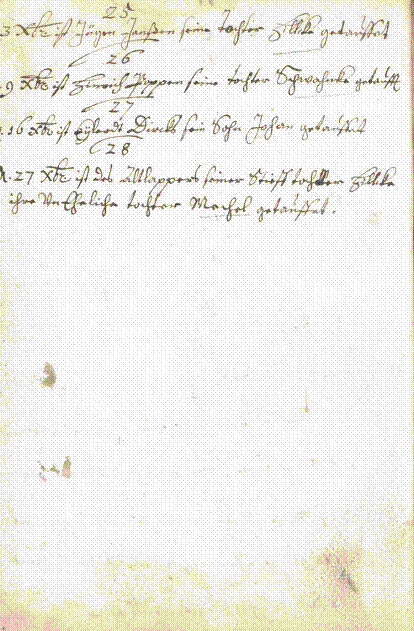 25
3 Xbr ist Jürgen Janßen seine tochter Hillke getauffet
26
9 Xbr ist Hinrich Poppen seine tochter Schwahnke getaufft
27
16 Xbr ist Eylerdt Dircks sein Sohn Johan getauffet
28
27 Xbr ist des Altlappers seiner Stieff tochter Hillke
ihre UnEheliche tochter Machel getauffet.